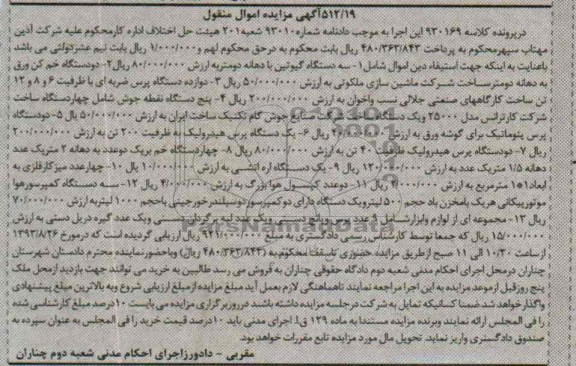 ۵۱۲/۱۹آگهی مزایده اموال منقول
درپرونده کلاسه ۹۳۰۱۶۹ این اجرا به موجب دادنامه شماره ۹۳۰۱۰ شعبه ۲۰۱ هیئت حل اختلاف اداره کارمحکوم علیه شرکت آذین
مهتاب سپهرمحکوم به پرداخت ۴۸۰/۳۶۳/۸۴۳ ریال بابت محکوم به درحق محکوم لهم و۱/۰۰۰/۰۰۰ ریال بابت نیم عشردولتی می باشد
باعنایت به اینکه جهت استیفاء دین اموال شامل۱- سه دستگاه گیوتین با دهانه دومتربه ارزش ۸۰/۰۰۰/۰۰۰ ریال ۲- دودستگاه خم کن ورق
به دهانه دومترساخت شرکت ماشین سازی ملکوتی به ارزش ۵۰/۰۰۰/۰۰۰ ریال ۳- دوازده دستگاه پرس ضربه ای با ظرفیت ۶ و ۸ و ۱۲
تن ساخت کارگاههای صنعتی جلالی نسب واخوان به ارزش ۲۰۰/۰۰۰/۰۰۰ ریال ۴- پنج دستگاه نقطه جوش شامل چهاردستگاه ساخت
شرکت کارترانس مدل ۲۵۰۰۰ ویک دستگاه صنایع جوش گام تکنیک ساخت ایران به ارزش ۵۰/۰۰۰/۰۰۰ ریال ۵- دودستگاه
پرس پنوماتیک برای گوشه ورق به ارزش ریال ۶- یک دستگاه پرس هیدرولیک به ظرفیت ۲۰۰ تن به ارزش ۲۰۰/۰۰۰/۰۰۰
ریال ۷- دودستگاه پرس هیدرولیک ظرفیت ۴۰ تن به ارزش ۸۰/۰۰۰/۰۰۰ ریال ۸- چهاردستگاه خم بریک دوعدد به دهانه ۲ متریک عدد
دهانه ۱/۵ متریک عدد به ارزش ۱۲۰/۰۰۰/۰۰۰ ریال ۹- یک دستگاه اره آتشی به ارزش ریال ۱۰- چهارعدد میزکارفلزی به
ابعاد ۱*۱ مترمربع به ارزش ۴/۰۰۰/۰۰۰ ریال ۱۱- دوعدد کپسول هوا بزرگ به ارزش ۴/۰۰۰/۰۰۰ ریال ۱۲- سه دستگاه کمپرسورهوا
موتورپیکانی هریک بامخزن باد حجم ۵۰۰ لیترویک دستگاه دارای دوکمپرسوردوسیلندرخورجینی باحجم ۱۰۰۰ لیتربه ارزش ۷۰/۰۰۰/۰۰۰
ریال ۱۳- مجموعه ای از لوازم وابزارشامل ۹ عدد پرس دستی ویک عدد لبه برگردان دستی ویک عدد گیره دریل دستی به ارزش
۱۵/۰۰۰/۰۰۰ ریال که جمعا توسط کارشناس رسمی دادگستری به مبلغ ۹۴۱/۰۰۰/۰۰۰ ریال ارزیابی گردیده است که درمورخ ۱۳۹۳/۸/۲۶
ازساعت ۱۰/۳۰ الی ۱۱ صبح ازطریق مزایده حضوری تاسقف محکوم به (۴۸۰/۳۶۳/۸۴۳ ریال) وباحضورنماینده محترم دادستان شهرستان
چناران درمحل اجرای احکام مدنی شعبه دوم دادگاه حقوقی چناران به فروش می رسد طالبین به خرید می توانند جهت بازدید ازمحل ملک
پنج روزقبل ازموعد مزایده به این اجرا مراجعه نمایند تاهماهنگی لازم بعمل آید مبلغ مزایده ازمبلغ ارزیابی شروع وبه بالاترین مبلغ پیشنهادی
واگذارخواهد شد ضمنا کسانیکه تمایل به شرکت درجلسه مزایده داشته باشند درروزبرگزاری مزایده می بایست ۱۰درصد مبلغ کارشناسی شده
را فی المجلس ارائه نمایند وبرنده مزایده مستندا به ماده ۱۲۹ ق.ا. اجرای مدنی باید ۱۰درصد قیمت خرید را فی المجلس به عنوان سپرده به
صندوق دادگستری واریز نماید. تحویل مال مورد مزایده تابع مقررات خواهد بود.
مقربی - دادورزاجرای احکام مدنی شعبه دوم چناران